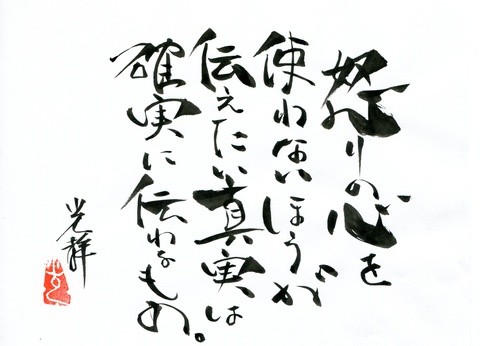 怒りの心を
使わないほうが
伝えたい真実は
確実に伝わるもの。
光祥